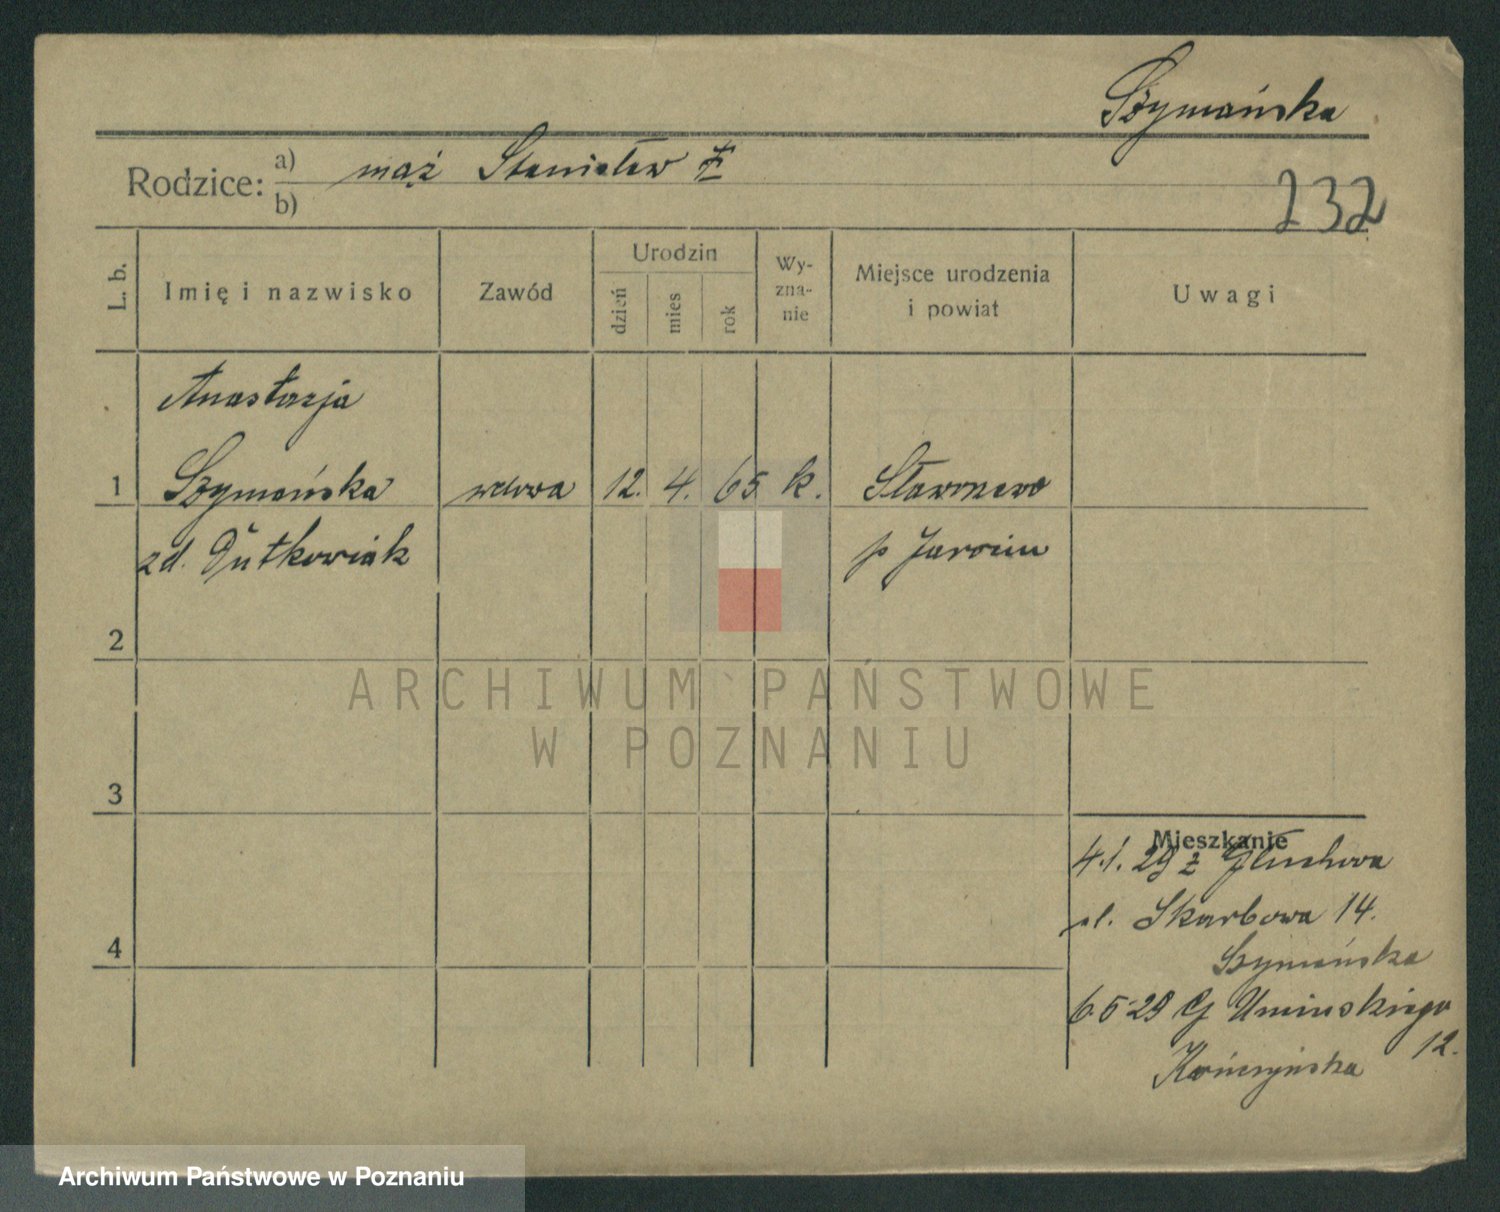 Szymańska
Rodzice: a) mąż Stanisław
b)
232
L. b.
Imię i nazwisko
Zawód
Urodzin
dzień
mies
rok
Wy-
zna-
nie
Miejsce urodzenia
i powiat
Uwagi
Anastazja
1 Szymańska wdowa 12. 4. 65 k.
zd. Dutkowiak p Jarocin
2
3
4
Mieszkanie
4.1. 29 z Głuchowa
ul. Skarbowa 14.
Szymańska
6 5 29 G Umińskiego
12.
Kończyńska
ARCHIWUM PAŃSTWOWE
W POZNANIU
Archiwum Państwowe w Poznaniu